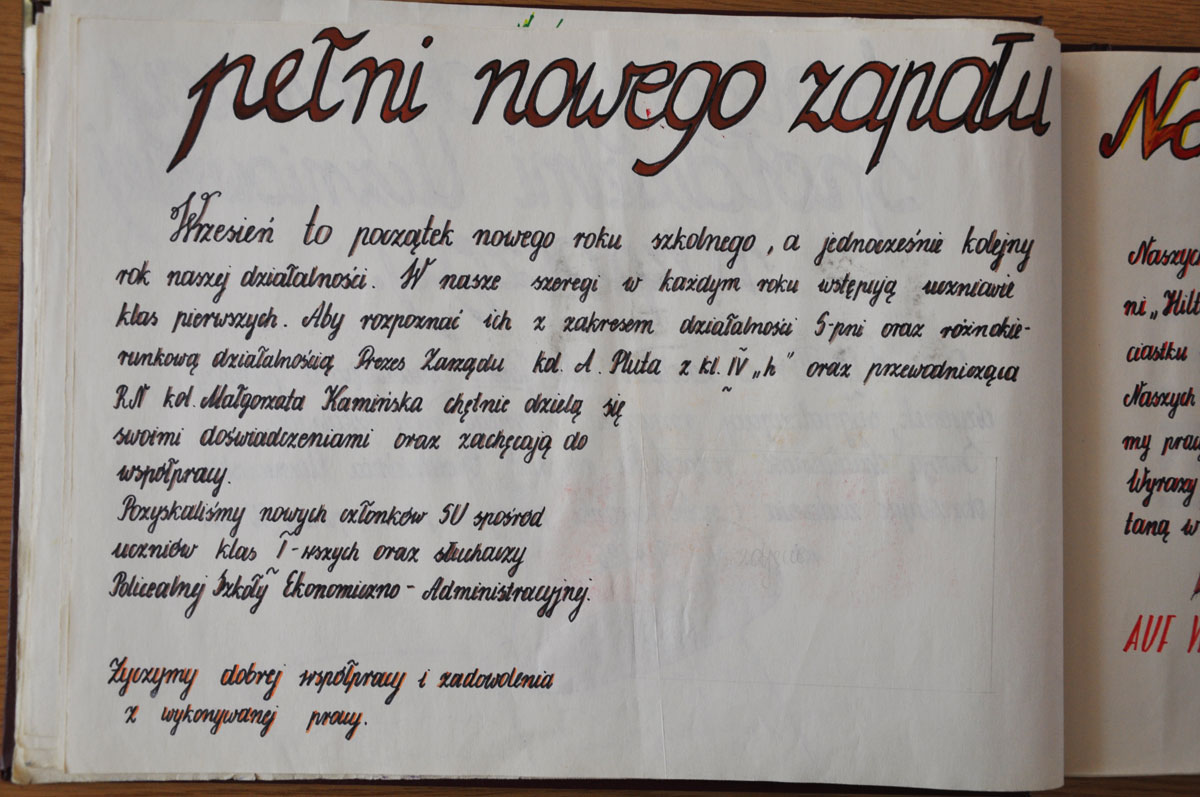 pełni nowego zapału
Wrzesień to początek nowego roku szkolnego, a jednocześnie kolejny
rok naszej działalności. W nasze szeregi w każdym roku wstępują uczniowie
klas pierwszych. Aby rozpoznać ich z zakresem działalności S-pni oraz różnokie-
runkową działalnością Prezes Zarządu kol. A. Pluta z kl. IV „h" oraz przewodnicząca
RN kol. Małgorzata Kamińska chętnie dzielą się
swoimi doświadczeniami oraz zachęcają do
współpracy.
Pozyskaliśmy nowych członków SU spośród
uczniów klas I-wszych oraz słuchaczy
Policealnej Szkoły Ekonomiczno - Administracyjnej.
Życzymy dobrej współpracy i zadowolenia
z wykonywanej pracy.
Naszych
ni „Hil
ciastku
Naszych
my pra
Wyrazy
taną w
AUF